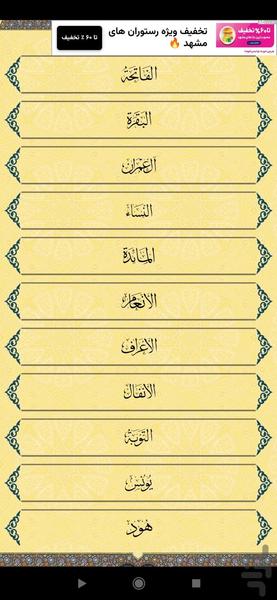 تخفیف ویژه رستوران های
مشهد 🔥
تا ۶۰ ٪ تخفیف
تا۶۰٪تخفیف
الفاتحة
البقرة
آل عمران
النساء
المائدة
الأنعام
الأعراف
الأنفال
التوبة
يونس
هود